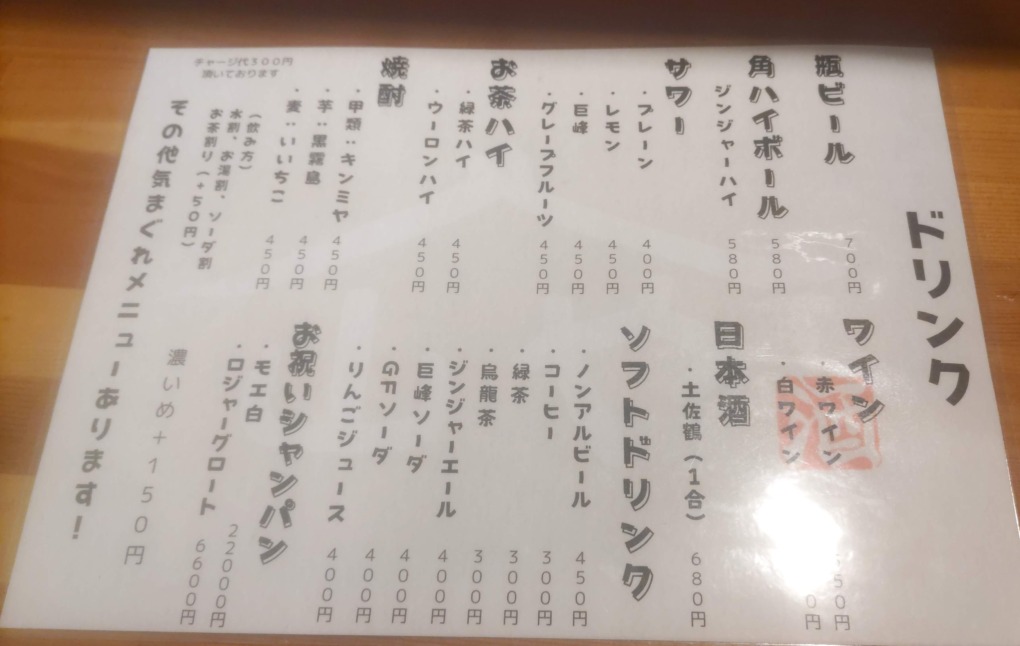 ドリンク
瓶ビール 700円
角ハイボール 580円
ジンジャーハイ 580円
サワー
・プレーン 400円
・レモン 450円
・巨峰 450円
・グレープフルーツ 450円
お茶ハイ
・緑茶ハイ 450円
・ウーロンハイ 450円
焼酎
・甲類：キンミヤ 450円
・芋：黒霧島 450円
・麦：いいちこ 450円
（飲み方）
水割、お湯割、ソーダ割
お茶割り（＋50円）
ワイン
・赤ワイン 50円
・白ワイン 0円
日本酒
・土佐鶴（1合） 680円
ソフトドリンク
・ノンアルビール 450円
・コーヒー 300円
・緑茶 300円
・烏龍茶 300円
・ジンジャーエール 400円
・巨峰ソーダ 400円
・GFソーダ 400円
・りんごジュース 400円
お祝いシャンパン
・モエ白 22000円
・ロジャーグロート 6600円
濃いめ＋150円
その他気まぐれメニューあります！
チャージ代300円
頂いております